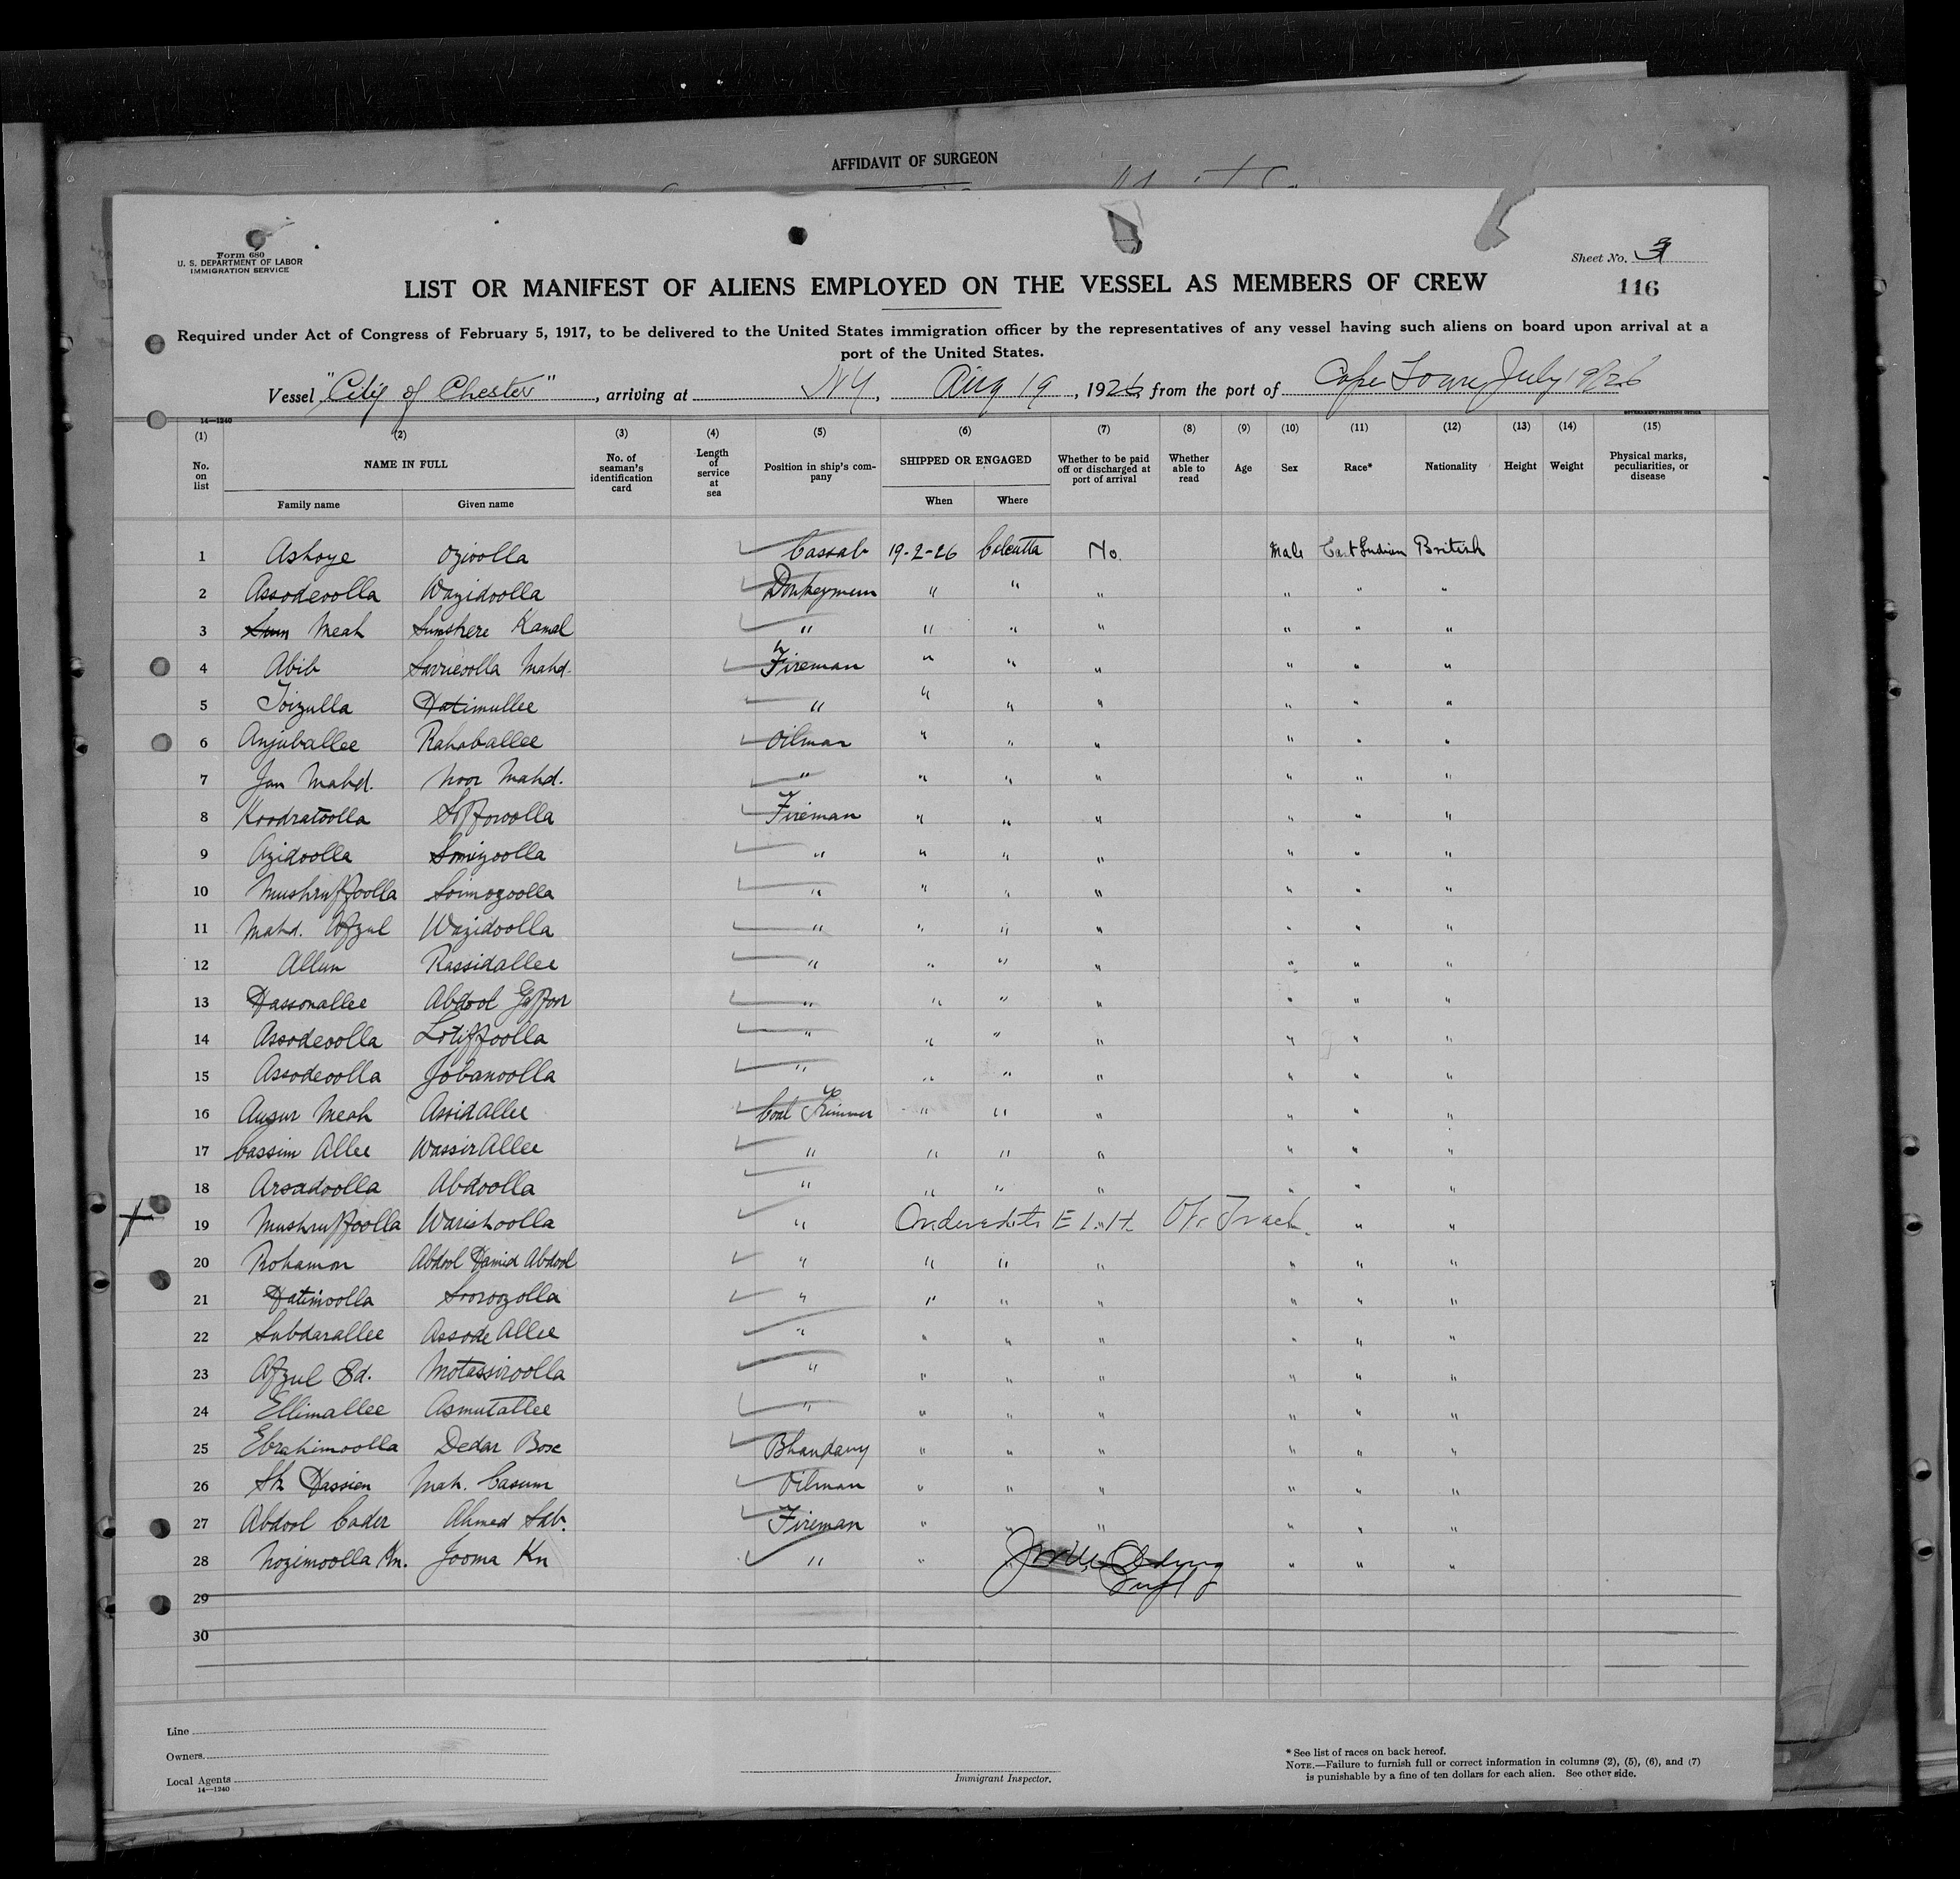 AFFIDAVIT OF SURGEON
Form 680
U. S. DEPARTMENT OF LABOR
IMMIGRATION SERVICE
Sheet No. 3
116
LIST OR MANIFEST OF ALIENS EMPLOYED ON THE VESSEL AS MEMBERS OF CREW
Required under Act of Congress of February 5, 1917, to be delivered to the United States immigration officer by the representatives of any vessel having such aliens on board upon arrival at a
port of the United States.
Vessel "City of Chester", arriving at NY, Aug 19, 1926, from the port of Cape Town July 19/26
14—1240
(1) (2) (3) (4) (5) (6) (7) (8) (9) (10) (11) (12) (13) (14) (15)
No. on list NAME IN FULL No. of seaman's identification card Length of service at sea Position in ship's company SHIPPED OR ENGAGED Whether to be paid off or discharged at port of arrival Whether able to read Age Sex Race* Nationality Height Weight Physical marks, peculiarities, or disease
Family name Given name When Where
1 Ashoye Ozioolla Cassab 19-2-26 Calcutta No. Male East Indian British
2 Assodeoolla Wazidoolla Donkeyman " " " " " "
3 Meah Sumshere Kamal " " " " " " "
4 Abib Sarrieoolla Mahd. Fireman " " " " " "
5 Toizulla Hatimullee " " " " " " "
6 Anjuballee Rahaballee Oilman " " " " " "
7 Jan Mahd. Noor Mahd. " " " " " " "
8 Koodratoolla Soffowoolla Fireman " " " " " "
9 Azidoolla Somizoolla " " " " " " "
10 Mushruffoolla Soimozoolla " " " " " " "
11 Mahd. Afzul Wazidoolla " " " " " " "
12 Allum Rassidallee " " " " " " "
13 Hassonallee Abdool Gaffoor " " " " " " "
14 Assodeoolla Lotiffoolla " " " " " " "
15 Assodeoolla Jobanoolla " " " " " " "
16 Ausur Meah Assidallee Coal Trimmer " " " " " "
17 Cassim Allee Wassirallee " " " " " " "
18 Arsadoolla Abdoolla " " " " " " "
19 Mushruffoolla Warishoolla " Ordered to E I. H. " "
20 Rohamon Abdool Hamid Abdool " " " " " " "
21 Hatimoolla Soroozolla " " " " " " "
22 Subdarallee Assode Allee " " " " " " "
23 Afzul Ed. Motassiroolla " " " " " " "
24 Ellimallee Asmutallee " " " " " " "
25 Ebrahimoolla Dedar Bose Bhandary " " " " " "
26 Sk Hassien Mah. Casum Oilman " " " " " "
27 Abdool Cader Ahmed Sab. Fireman " " " " " "
28 Nozimoolla Kn. Jooma Kn " " " " "
29
30
Line
Owners
Local Agents
14—1240
Immigrant Inspector.
* See list of races on back hereof.
NOTE.—Failure to furnish full or correct information in columns (2), (5), (6), and (7)
is punishable by a fine of ten dollars for each alien. See other side.